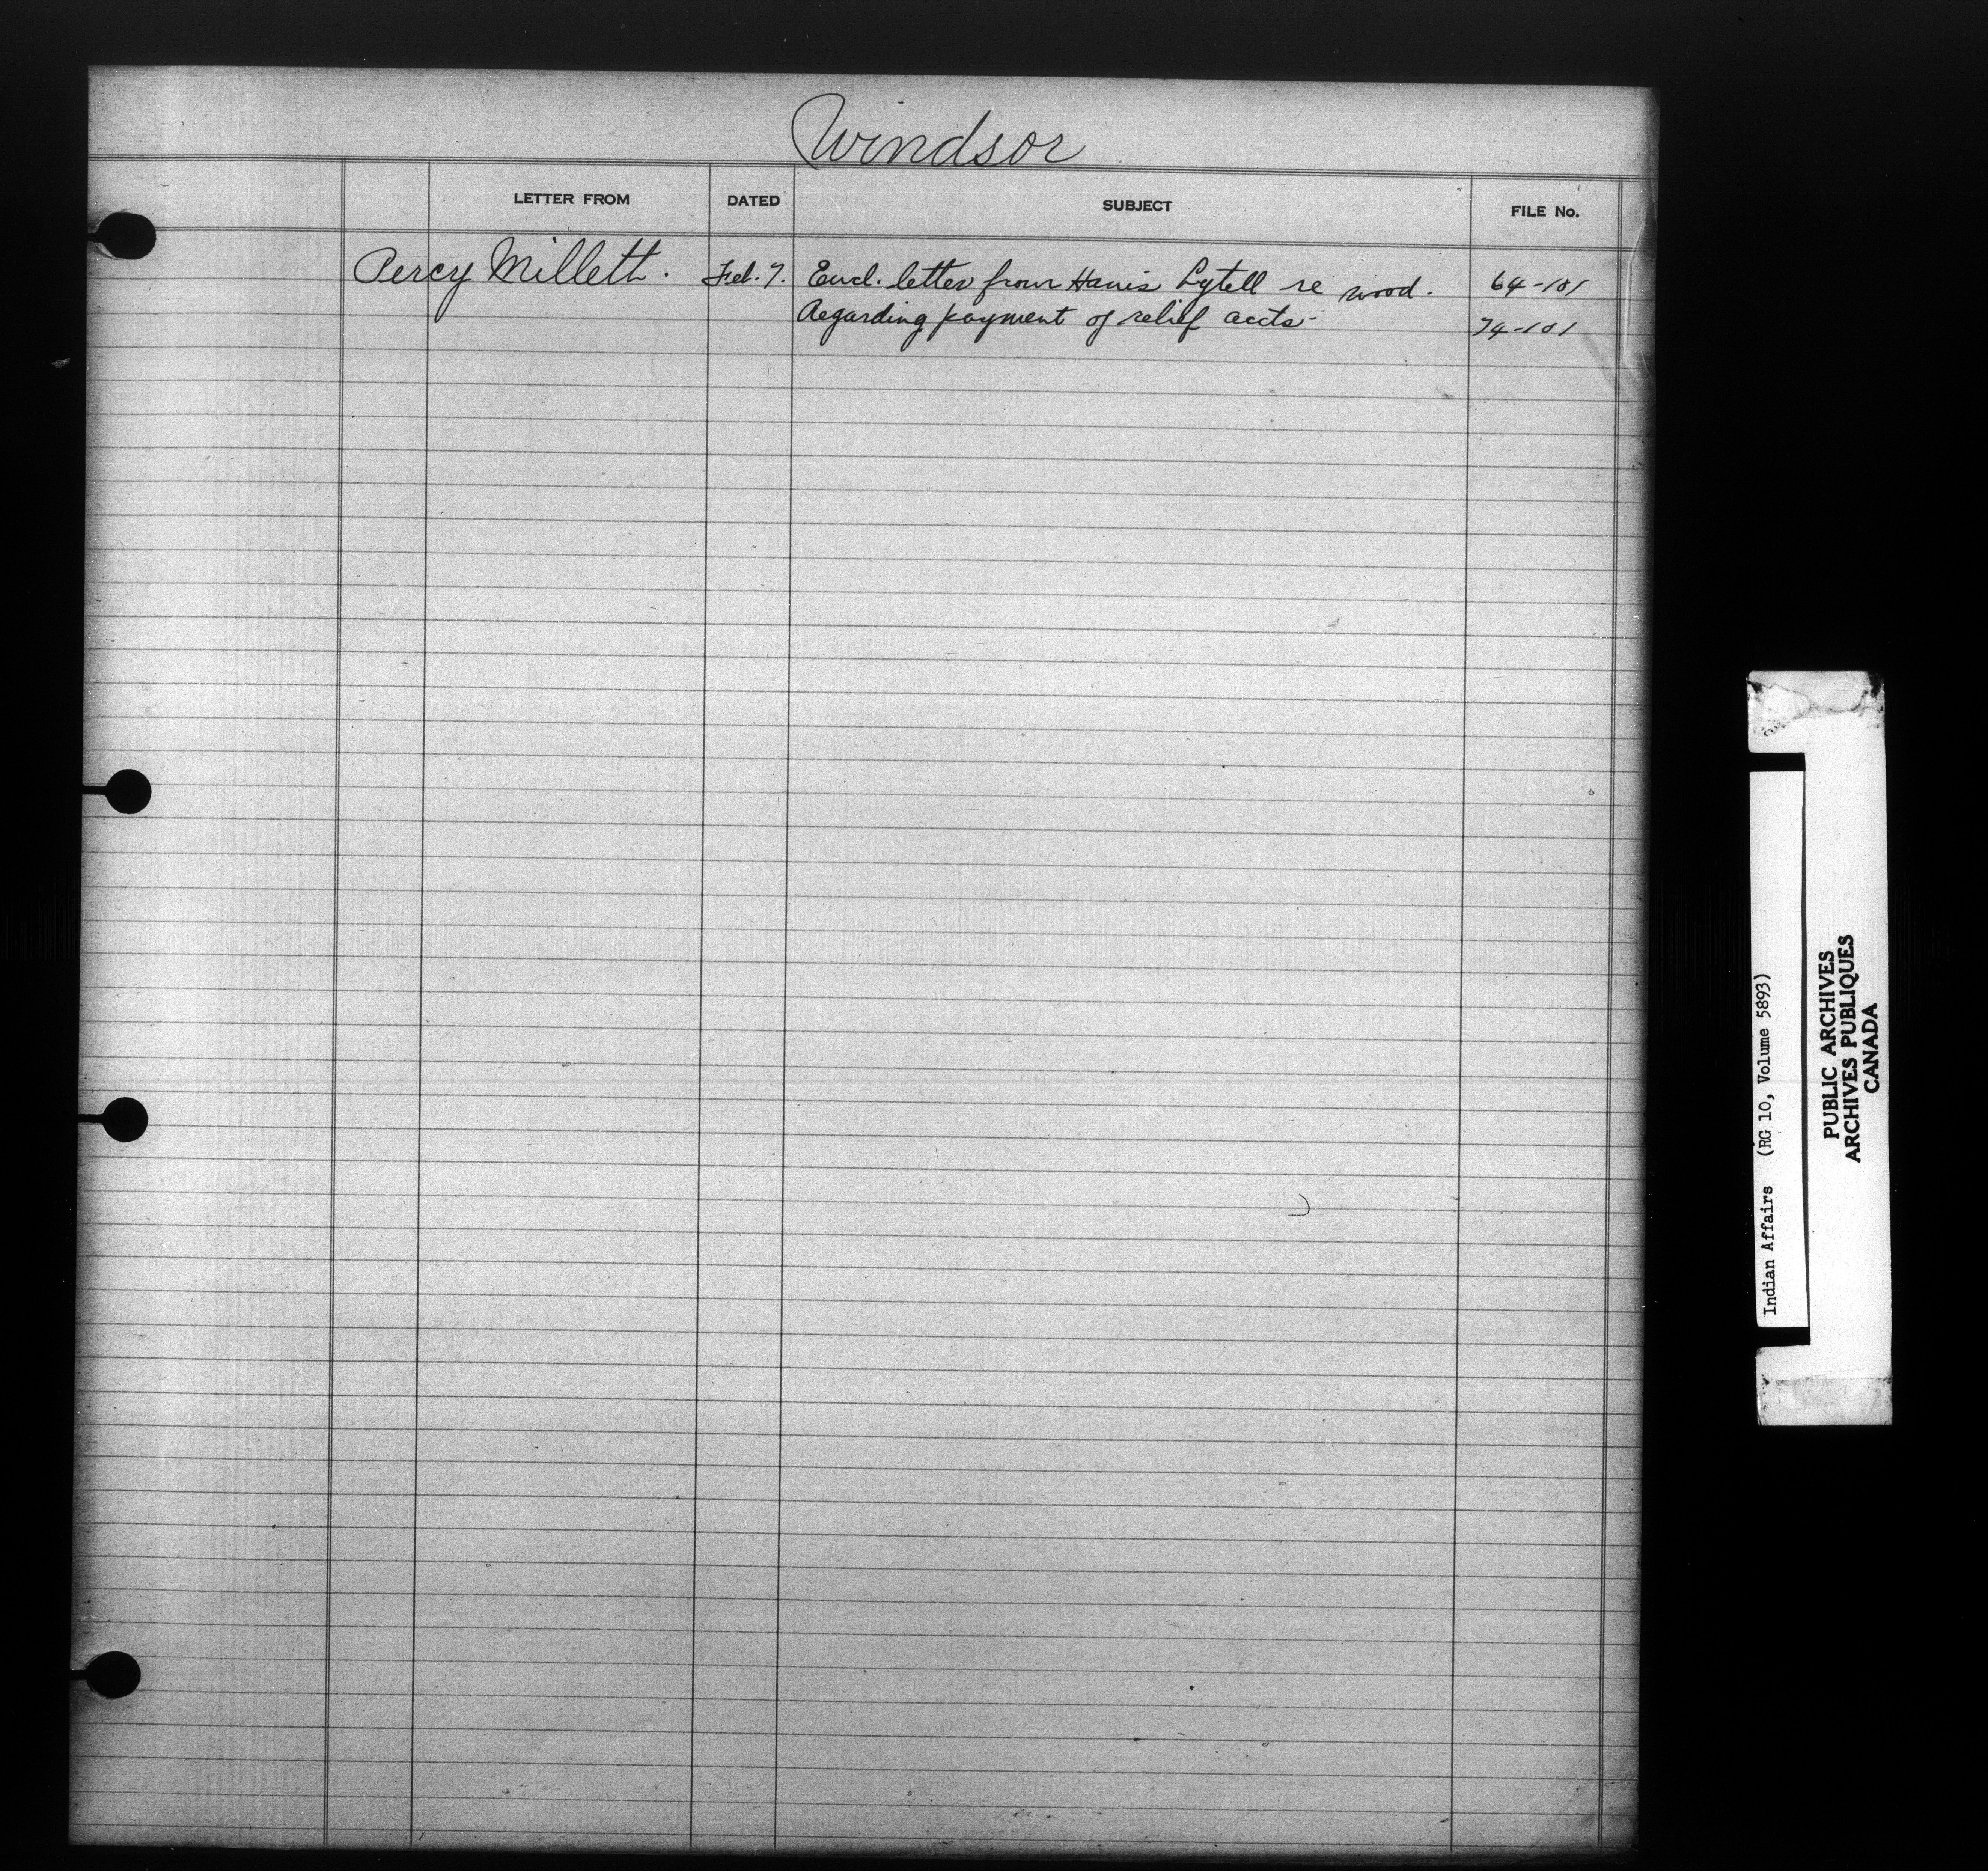 Windsor
LETTER FROM DATED SUBJECT FILE No.
Percy Millett. Feb. 7. Encl. letter from Harris Lytell re wood. 64-101
Regarding payment of relief accts- 74-101
Indian Affairs (RG 10, Volume 5893)
PUBLIC ARCHIVES
ARCHIVES PUBLIQUES
CANADA